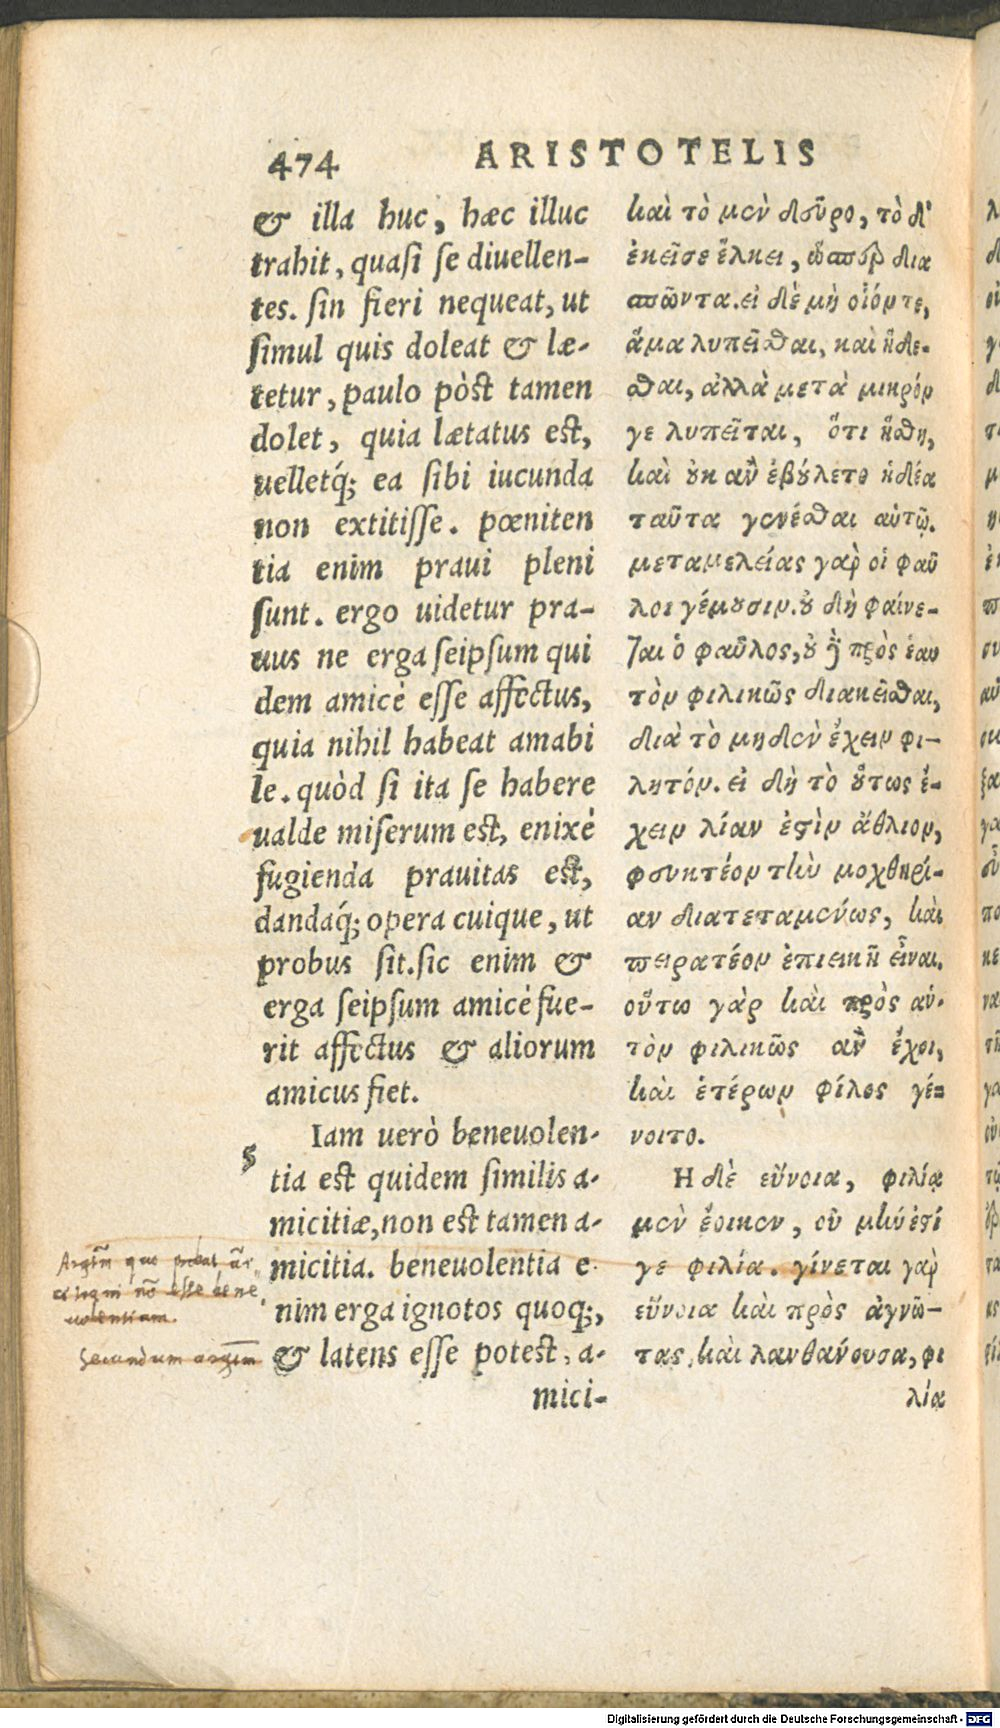 474 ARISTOTELIS
& illa huc, hæc illuc
trahit, quaſi ſe diuellen-
tes. ſin fieri nequeat, ut
ſimul quis doleat & læ-
tetur, paulo pòst tamen
dolet, quia lætatus est,
uelletq́; ea ſibi iucunda
non extitiſſe. pœniten
tia enim praui pleni
ſunt. ergo uidetur pra-
uus ne erga ſeipſum qui
dem amicè eſſe affectus,
quia nihil habeat amabi
le. quòd ſi ita ſe habere
ualde miſerum est, enixè
fugienda prauitas est,
dandaq́; opera cuique, ut
probus ſit. ſic enim &
erga ſeipſum amicè fue-
rit affectus & aliorum
amicus fiet.
Iam uerò beneuolen-
tia est quidem ſimilis a-
micitiæ, non est tamen a-
micitia. beneuolentia e
nim erga ignotos quoq;,
& latens eſſe potest, a-
mici-
καὶ τὸ μὲν δεῦρο, τὸ δ'
ἐκεῖσε ἕλκει, ὥσπερ δια
σπῶντα. εἰ δὲ μὴ οἷόν τε,
ἅμα λυπεῖσθαι, καὶ ἥδε-
σθαι, ἀλλὰ μετὰ μικρόν
γε λυπεῖται, ὅτι ἥσθη,
καὶ οὐκ ἂν ἐβούλετο ἡδέα
ταῦτα γενέσθαι αὑτῷ.
μεταμελείας γὰρ οἱ φαῦ
λοι γέμουσιν. οὐ δὴ φαίνε-
ται ὁ φαῦλος, οὐδὲ πρὸς ἑαυ
τὸν φιλικῶς διακεῖσθαι,
διὰ τὸ μηδὲν ἔχειν φι-
λητόν. εἰ δὴ τὸ οὕτως ἔ-
χειν λίαν ἐστὶν ἄθλιον,
φευκτέον τὴν μοχθηρί-
αν διατεταμένως, καὶ
πειρατέον ἐπιεικῆ εἶναι.
οὕτω γὰρ καὶ πρὸς αὑ-
τὸν φιλικῶς ἂν ἔχοι,
καὶ ἑτέρων φίλος γέ-
νοιτο.
Η δὲ εὔνοια, φιλίᾳ
μὲν ἔοικεν, οὐ μὴν ἐστί
γε φιλία. γίνεται γὰρ
εὔνοια καὶ πρὸς ἀγνῶ-
τας, καὶ λανθάνουσα, φι
λία
5
Argm̄ quo probat
esse bene
uolentiam.
Secundum argm̄